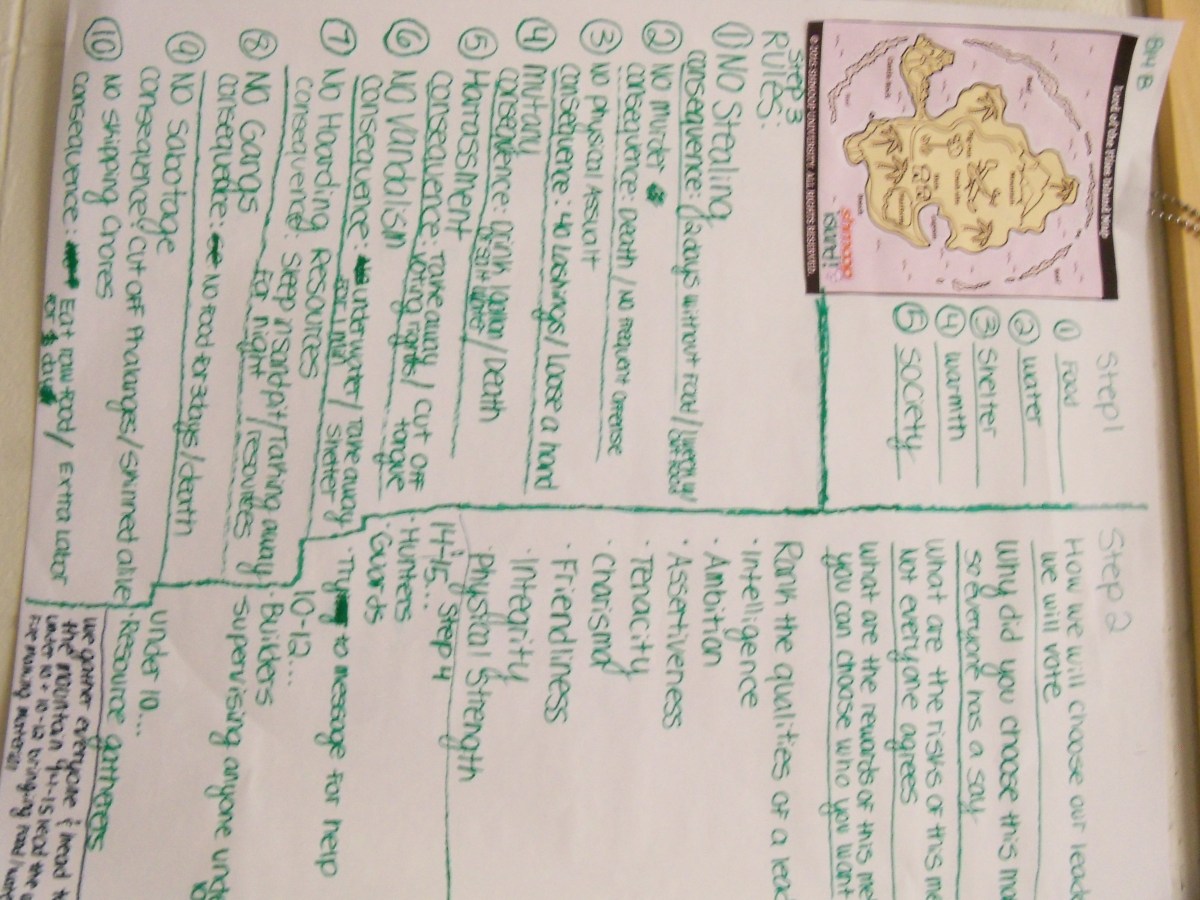 BH B
Lord of the Flies Island Map
© 2015 SHMOOP UNIVERSITY. ALL RIGHTS RESERVED.
shmoop
ISLAND!
Step 1
① Food
② water
③ Shelter
④ warmth
⑤ SOCIETY
Step 2
How we will choose our leade
we will vote
Why did you choose this
so everyone has a say
what are the risks of this me
Not everyone agrees
what are the rewards of this me
you can choose who you want
Rank the qualities of a lead
· Intelligence
· Ambition
· Assertiveness
· Tenacity
· Charisma
· Friendliness
· Integrity
· Physical Strength
Step 3
RULES:
① NO Stealing
consequence: 2 days without food/
② NO murder
consequence: Death / NO frequent offense
③ NO physical Assualt
consequence: 40 lashings / Loose a hand
④ mutany
consequence: Drink lotion / Death
salt water
⑤ Harassment
Consequence: Take away / cut off
voting rights / tongue
⑥ NO Vandalism
Consequence: underwater / Take away
for 1 min / Shelter
⑦ NO Hoarding Resources
Consequence: Sleep in Sand pit / Taking away
For night / resources
⑧ NO Gangs
consequence: NO Food for 3 days / death
⑨ NO Sabotage
consequence: cut off Phalanges / Skinned alive
⑩ NO Skipping Chores
consequence: Eat raw food / Extra Labor
for days
Step 4
14-15...
· Hunters
· Guards
· Try to message for help
10-12...
· Builders
· Supervising anyone unde
10
under 10...
· Resource gatherers
we gather everyone & head t
the mountain 14-15 lead the
under 10 + 10-12 bringing food/
fire making materials